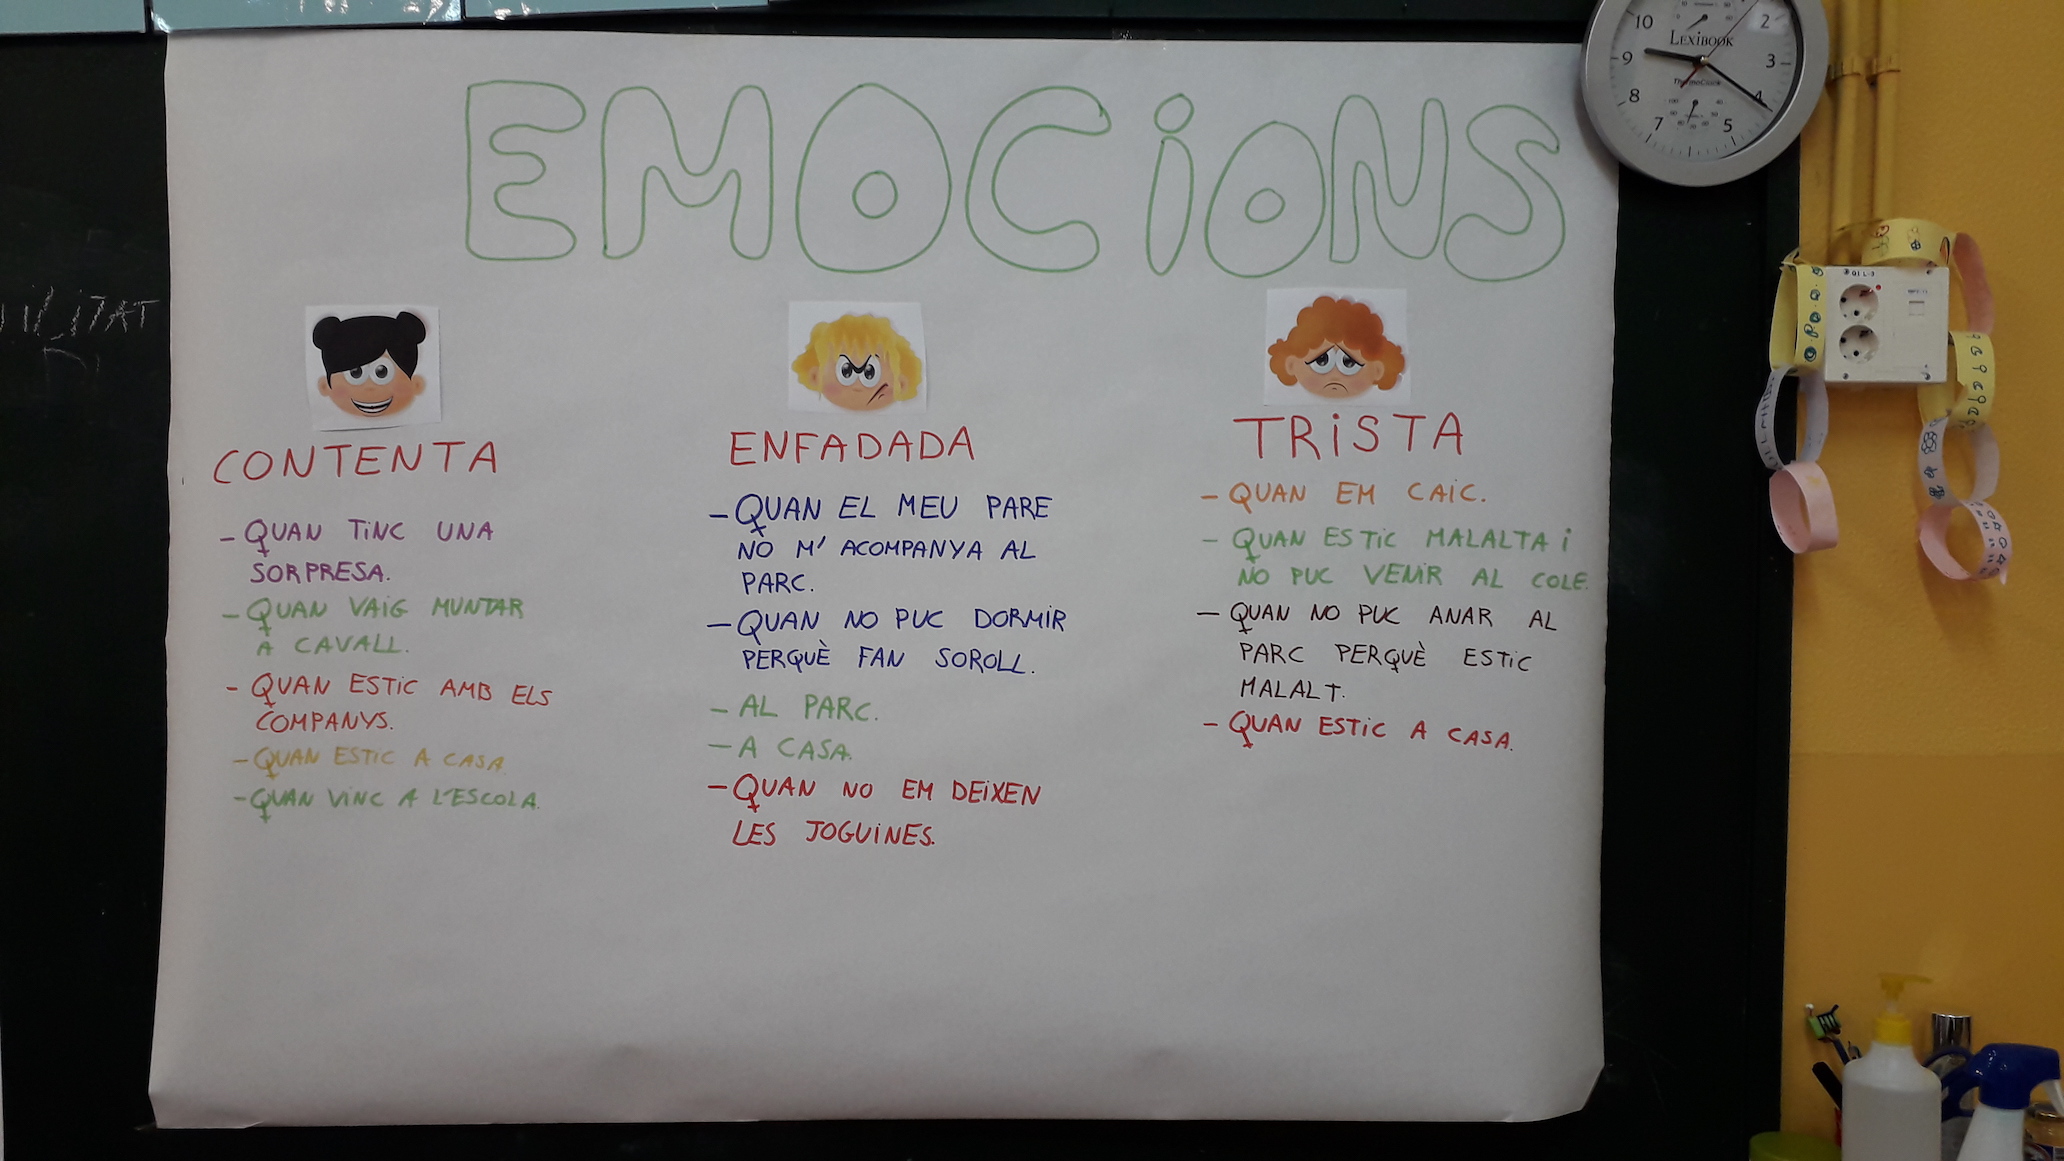 EMOCiONS
CONTENTA
- QUAN TiNC UNA
SORPRESA.
- QUAN VAiG MUNTAR
A CAVALL.
- QUAN ESTiC AMB ELS
COMPANYS.
- QUAN ESTiC A CASA.
- QUAN ViNC A L'ESCOLA.
ENFADADA
- QUAN EL MEU PARE
NO M'ACOMPANYA AL
PARC.
- QUAN NO PUC DORMiR
PERQUÈ FAN SOROLL.
- AL PARC.
- A CASA.
- QUAN NO EM DEiXEN
LES JOGUiNES.
TRiSTA
- QUAN EM CAiC.
- QUAN ESTiC MALALTA i
NO PUC VENiR AL COLE.
- QUAN NO PUC ANAR AL
PARC PERQUÈ ESTiC
MALALT.
- QUAN ESTiC A CASA.
10 2
LEXIBOOK
9 3
8 4
7 5